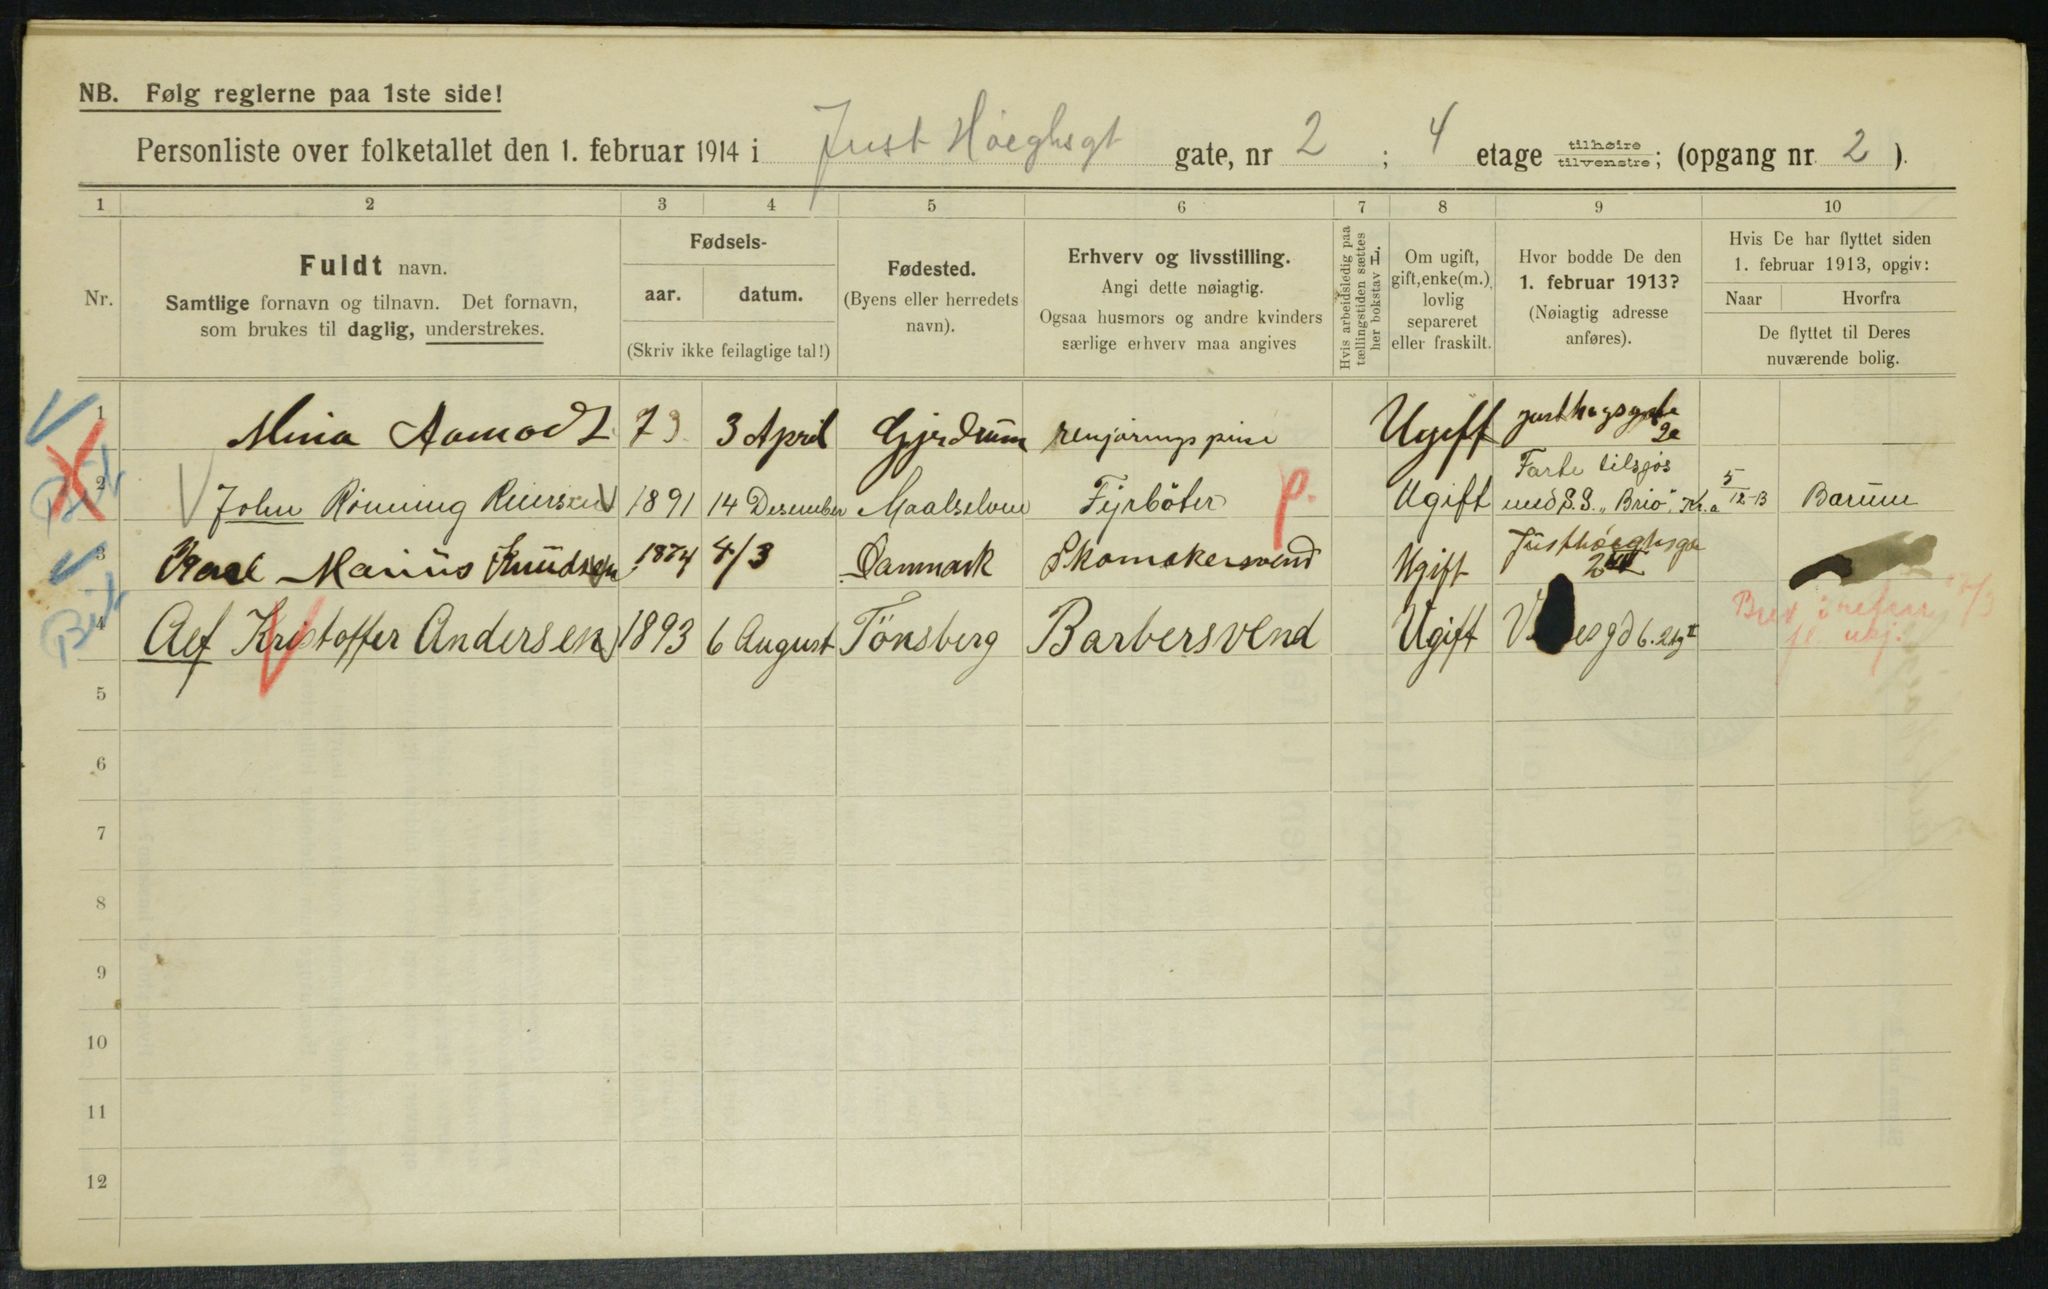 NB. Følg reglerne paa 1ste side!
Personliste over folketallet den 1. februar 1914 i Just Høeghsgt gate, nr 2 ; 4 etage tilhøire tilvenstre; (opgang nr 2 ).
1 2 3 4 5 6 7 8 9 10
Nr.
Fuldt navn.
Samtlige fornavn og tilnavn. Det fornavn,
som brukes til daglig, understrekes.
Fødsels-
aar. datum.
(Skriv ikke feilagtige tal!)
Fødested.
(Byens eller herredets
navn).
Erhverv og livsstilling.
Angi dette nøiagtig.
Ogsaa husmors og andre kvinders
særlige erhverv maa angives
Hvis arbeidsledig paa
tællingstiden sættes
her bokstav L.
Om ugift,
gift, enke(m.),
lovlig
separeret
eller fraskilt.
Hvor bodde De den
1. februar 1913?
(Nøiagtig adresse
anføres).
Hvis De har flyttet siden
1. februar 1913, opgiv:
Naar Hvorfra
De flyttet til Deres
nuværende bolig.
1 Mina Aamodt 73 3 April Gjerdrum Ugiff 2e
2 John Rönning Reiersen 1891 14 Desember Maalselven Fyrböter p. Ugift Farte tilsjøs
med S.S. „Brio", Kr.a 5/12-13 Barum
3 Karl Marius Knudsen 1874 4/3 Danmark Skomakersvend Ugift Justhöeghsga
2
4 Alf Kristoffer Andersen 1893 6 August Tönsberg Barbersvend Ugift
5
6
7
8
9
10
11
12